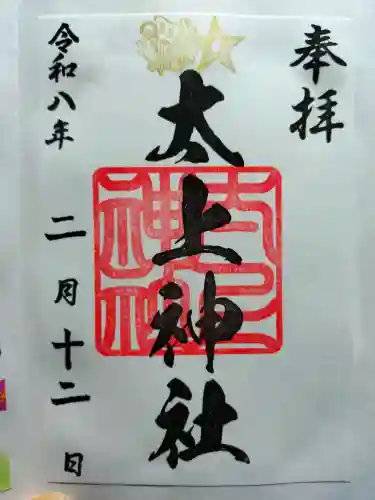 奉拝
太上神社
令和八年
二月十二日